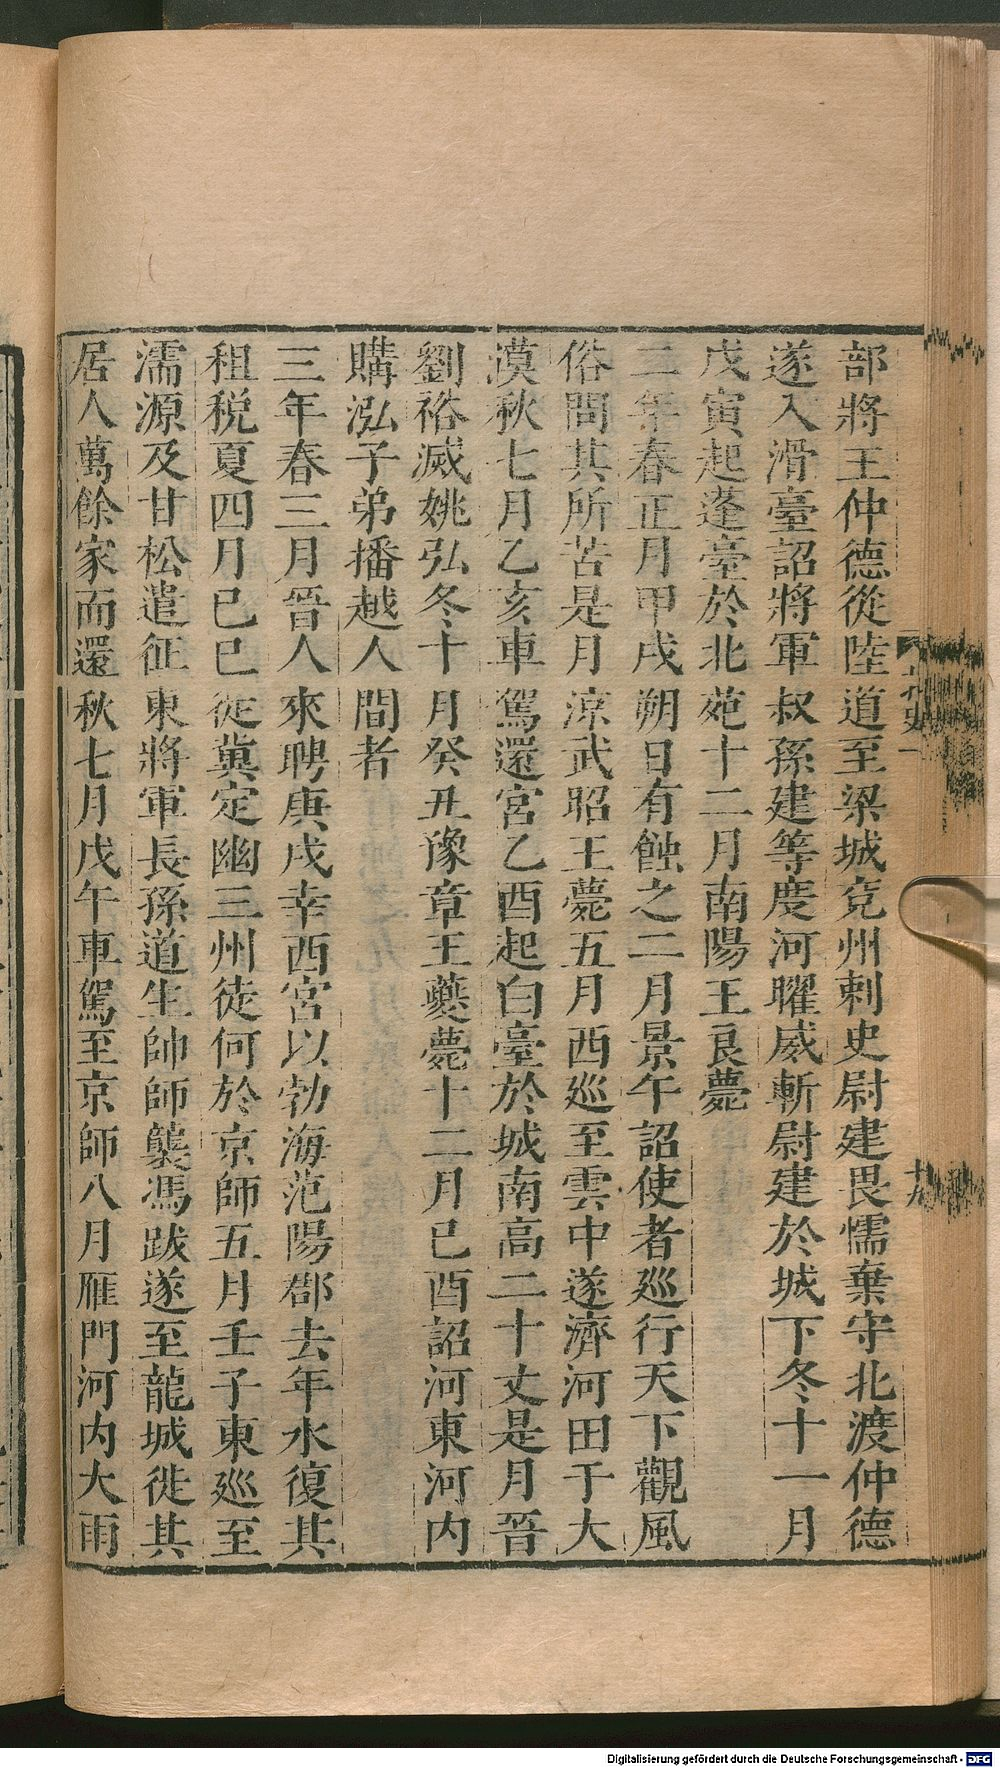 部將王仲德從陸道至梁城兗州刺史尉建畏懦棄守北渡仲德
遂入滑臺詔將軍叔孫建等度河曜威斬尉建於城下冬十一月
戊寅起蓬臺於北苑十二月南陽王良薨
二年春正月甲戌朔日有蝕之二月景午詔使者巡行天下觀風
俗問其所苦是月涼武昭王薨五月西巡至雲中遂濟河田于大
漠秋七月乙亥車駕還宮乙酉起白臺於城南高二十丈是月晉
劉裕滅姚弘冬十月癸丑豫章王夔薨十二月巳酉詔河東河內
購泓子弟播越人間者
三年春三月晉人來聘庚戌幸西宮以勃海范陽郡去年水復其
租稅夏四月巳巳徙冀定幽三州徒何於京師五月壬子東巡至
濡源及甘松遣征東將軍長孫道生帥師襲馮跋遂至龍城徙其
居人萬餘家而還秋七月戊午車駕至京師八月雁門河內大雨
北史一
十九
Digitalisierung gefördert durch die Deutsche Forschungsgemeinschaft - DFG